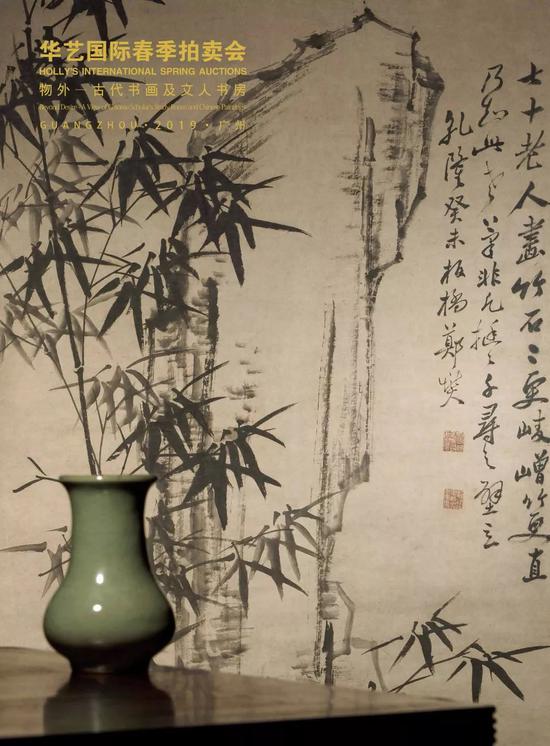 华艺国际春季拍卖会
HOLLY'S INTERNATIONAL SPRING AUCTIONS
物外—古代书画及文人书房
Beyond Desire - A View of Genteel Scholar's Study Room and Chinese Paintings
GUANGZHOU · 2019 · 广州
七十老人画竹石石更崚嶒竹更直
乃知此老笔非凡挺挺千寻之壁立
乾隆癸未板桥郑燮